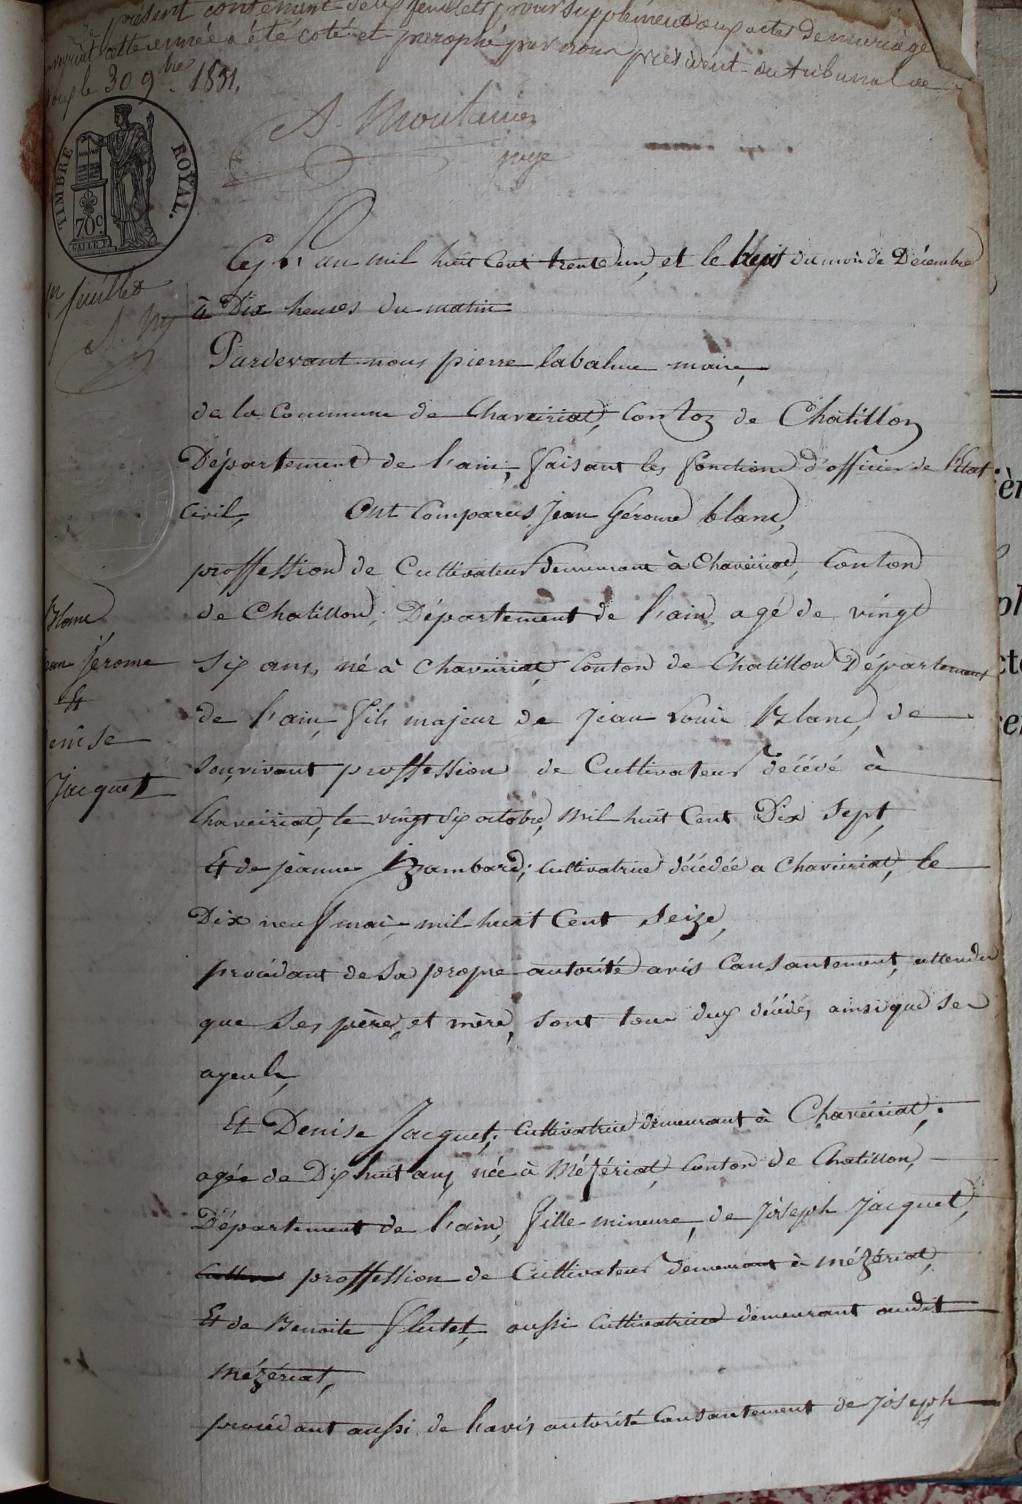 présent contenant deux feuillets pour supplément aux actes de mariage
cette année a été coté et paraphé par nous président du tribunal de
le 30 9bre 1831.
A. Moutanier
juge
TIMBRE ROYAL.
70c
feuillet
Cej. L'an mil huit Cent trente un, et le huit du moi de Décembre
à Dix heures du matin
Pardevant nous pierre labalme maire,
de la Commune de Chaveiriat, Conton de Chatillon
Département de l'ain, faisant les fonctions d'officier de l'état
Civil, Ont Comparus Jean Gérome blanc,
proffession de Cultivateur demeurant à Chaveiriat, Conton
de Chatillon, Département de l'ain, agé de vingt
Blanc
six ans, né à Chaveiriat, Conton de Chatillon Département
Jérome
Et
de l'ain, fils majeur de Jean Louis Blanc, de
enise
Sonvivant proffession de Cultivateur décédé à
Jacquet
Chaveiriat, le vingt six octobre, mil huit Cent Dix Sept,
Et de jeanne Izambard; cultivatrice décédée a Chaveiriat, le
Dix neuf mai mil huit Cent Seize,
procédant de Sa propre autorité avis Consantement, attendu
que Ses père, et mère, Sont tous deux décédés, ainsi que ses
ayeuls,
Et Denise Jacquet; Cultivatrice demeurant à Chaveiriat.
agée de Dix huit ans, née à Mézériat, Conton de Chatillon,
Département de l'ain, fille mineure, de Joseph Jacquet,
proffession de Cultivateur demeurant à mézériat,
Et de Benoite flutet, aussi Cultivatrice demeurant audit
Mézériat,
procédant aussi de l'avis autorité Consantement de Joseph